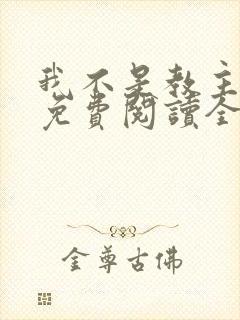 我不是教主
免費閱讀全
金尊古佛